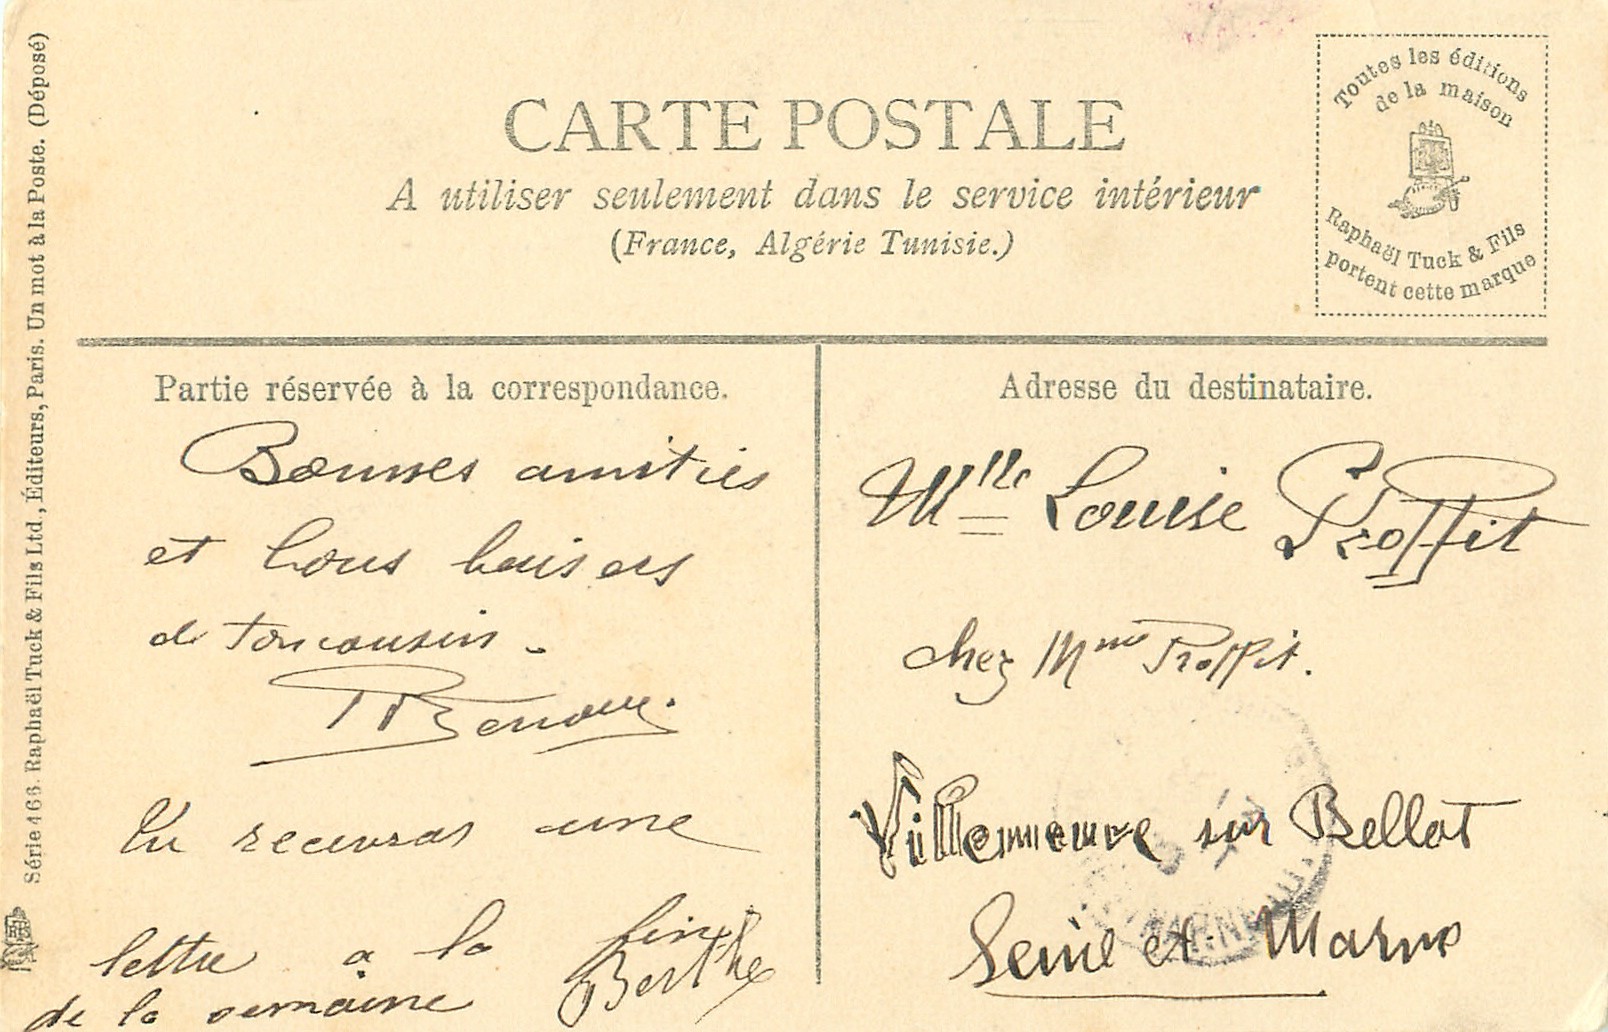 CARTE POSTALE
A utiliser seulement dans le service intérieur
(France, Algérie Tunisie.)
Toutes les éditions
de la maison
Raphaël Tuck & Fils
portent cette marque
Série 466. Raphaël Tuck & Fils Ltd., Éditeurs, Paris. Un mot à la Poste. (Déposé)
Partie réservée à la correspondance.
Bonnes amitiés
et bons baisers
de ton cousin.
Tu recevras une
lettre a la fin
de la semaine
Berthe
Adresse du destinataire.
Mlle Louise Proffit
chez Mme Proffit.
Villeneuve sur Bellot
Seine et Marne